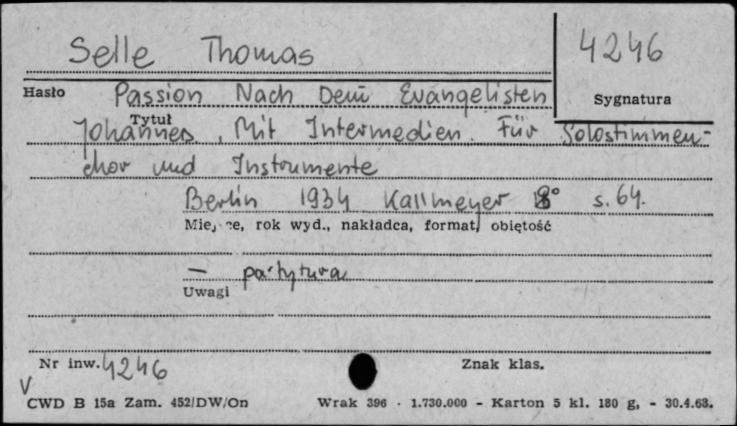 Selle Thomas
4246
Hasło
Sygnatura
Passion Nach Dem Evangelisten
Tytuł
Johannes, Mit Intermedien. Für Solostimmen-
chor und Instrumente
Berlin 1934 Kallmeyer 8° s. 64.
Miejsce, rok wyd., nakładca, format, objętość
— partytura
Uwagi
Nr inw. 4246
Znak klas.
V
CWD B 15a Zam. 452/DW/On
Wrak 396 - 1.730.000 - Karton 5 kl. 180 g, - 30.4.68.